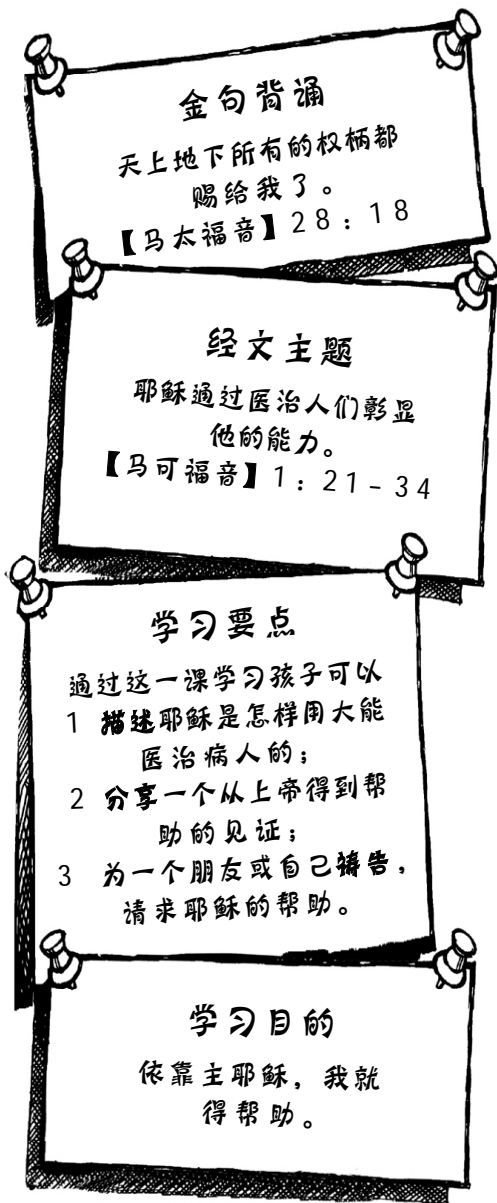 金句背诵
天上地下所有的权柄都
赐给我了。
【马太福音】28：18
经文主题
耶稣通过医治人们彰显
他的能力。
【马可福音】1：21-34
学习要点
通过这一课学习孩子可以
1 描述耶稣是怎样用大能
医治病人的；
2 分享一个从上帝得到帮
助的见证；
3 为一个朋友或自己祷告，
请求耶稣的帮助。
学习目的
依靠主耶稣，我就
得帮助。